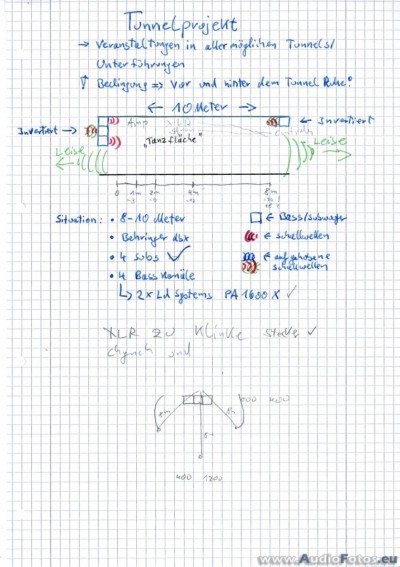 Tunnelprojekt
→ Veranstaltungen in aller möglichen Tunnels/
Unterführungen
Bedingung => Vor und hinter dem Tunnel Ruhe!
← 10 Meter →
Invertiert →
← Invertiert
Leise
"Tanzfläche"
Leise
0 1m 2m 4m 8m
Situation: • 8-10 Meter
• Behringer dbx
• 4 Subs ✓
• 4 Bass Kanäle
↳ 2x Ld Systems PA 1600 X ✓
← Bass/subwoofer
← schallwellen
← aufgehobene
schallwellen
XLR zu Klinke ✓
und
8m 8m
8m
400
400 1200
www.AudioFotos.eu